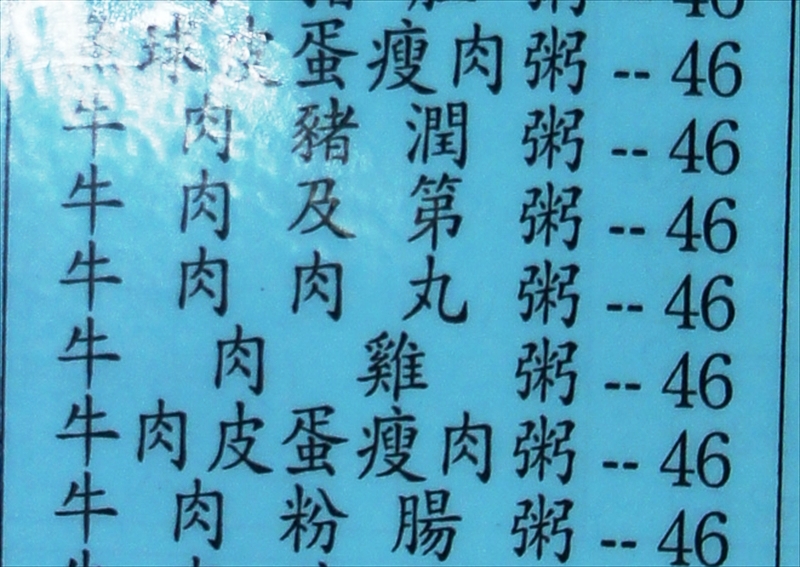 粥 -- 46
球皮蛋瘦肉粥 -- 46
牛肉豬潤粥 -- 46
牛肉及第粥 -- 46
牛肉肉丸粥 -- 46
牛肉雞粥 -- 46
牛肉皮蛋瘦肉粥 -- 46
牛肉粉腸粥 -- 46